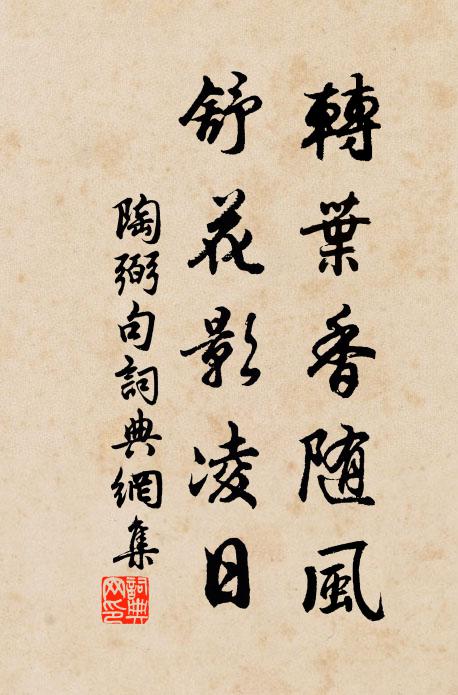 轉葉香随風
舒花影凌日
陶弼句詞典網集
詞典網印